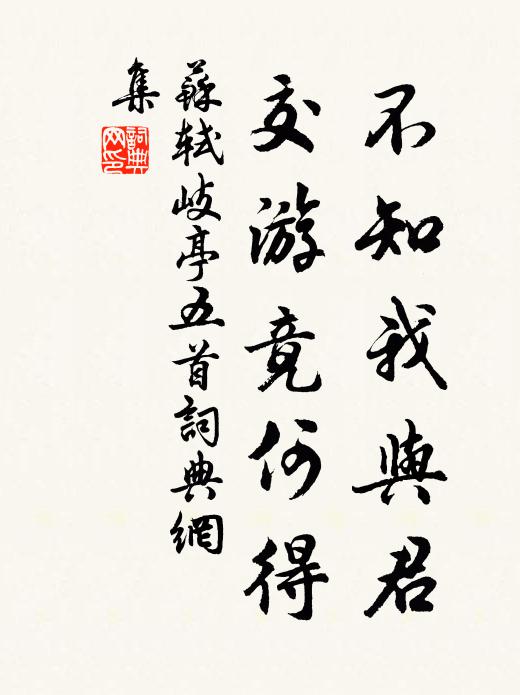 不知我與君
交游竟何得
蘇軾岐亭五首詞典網
集
詞典網印